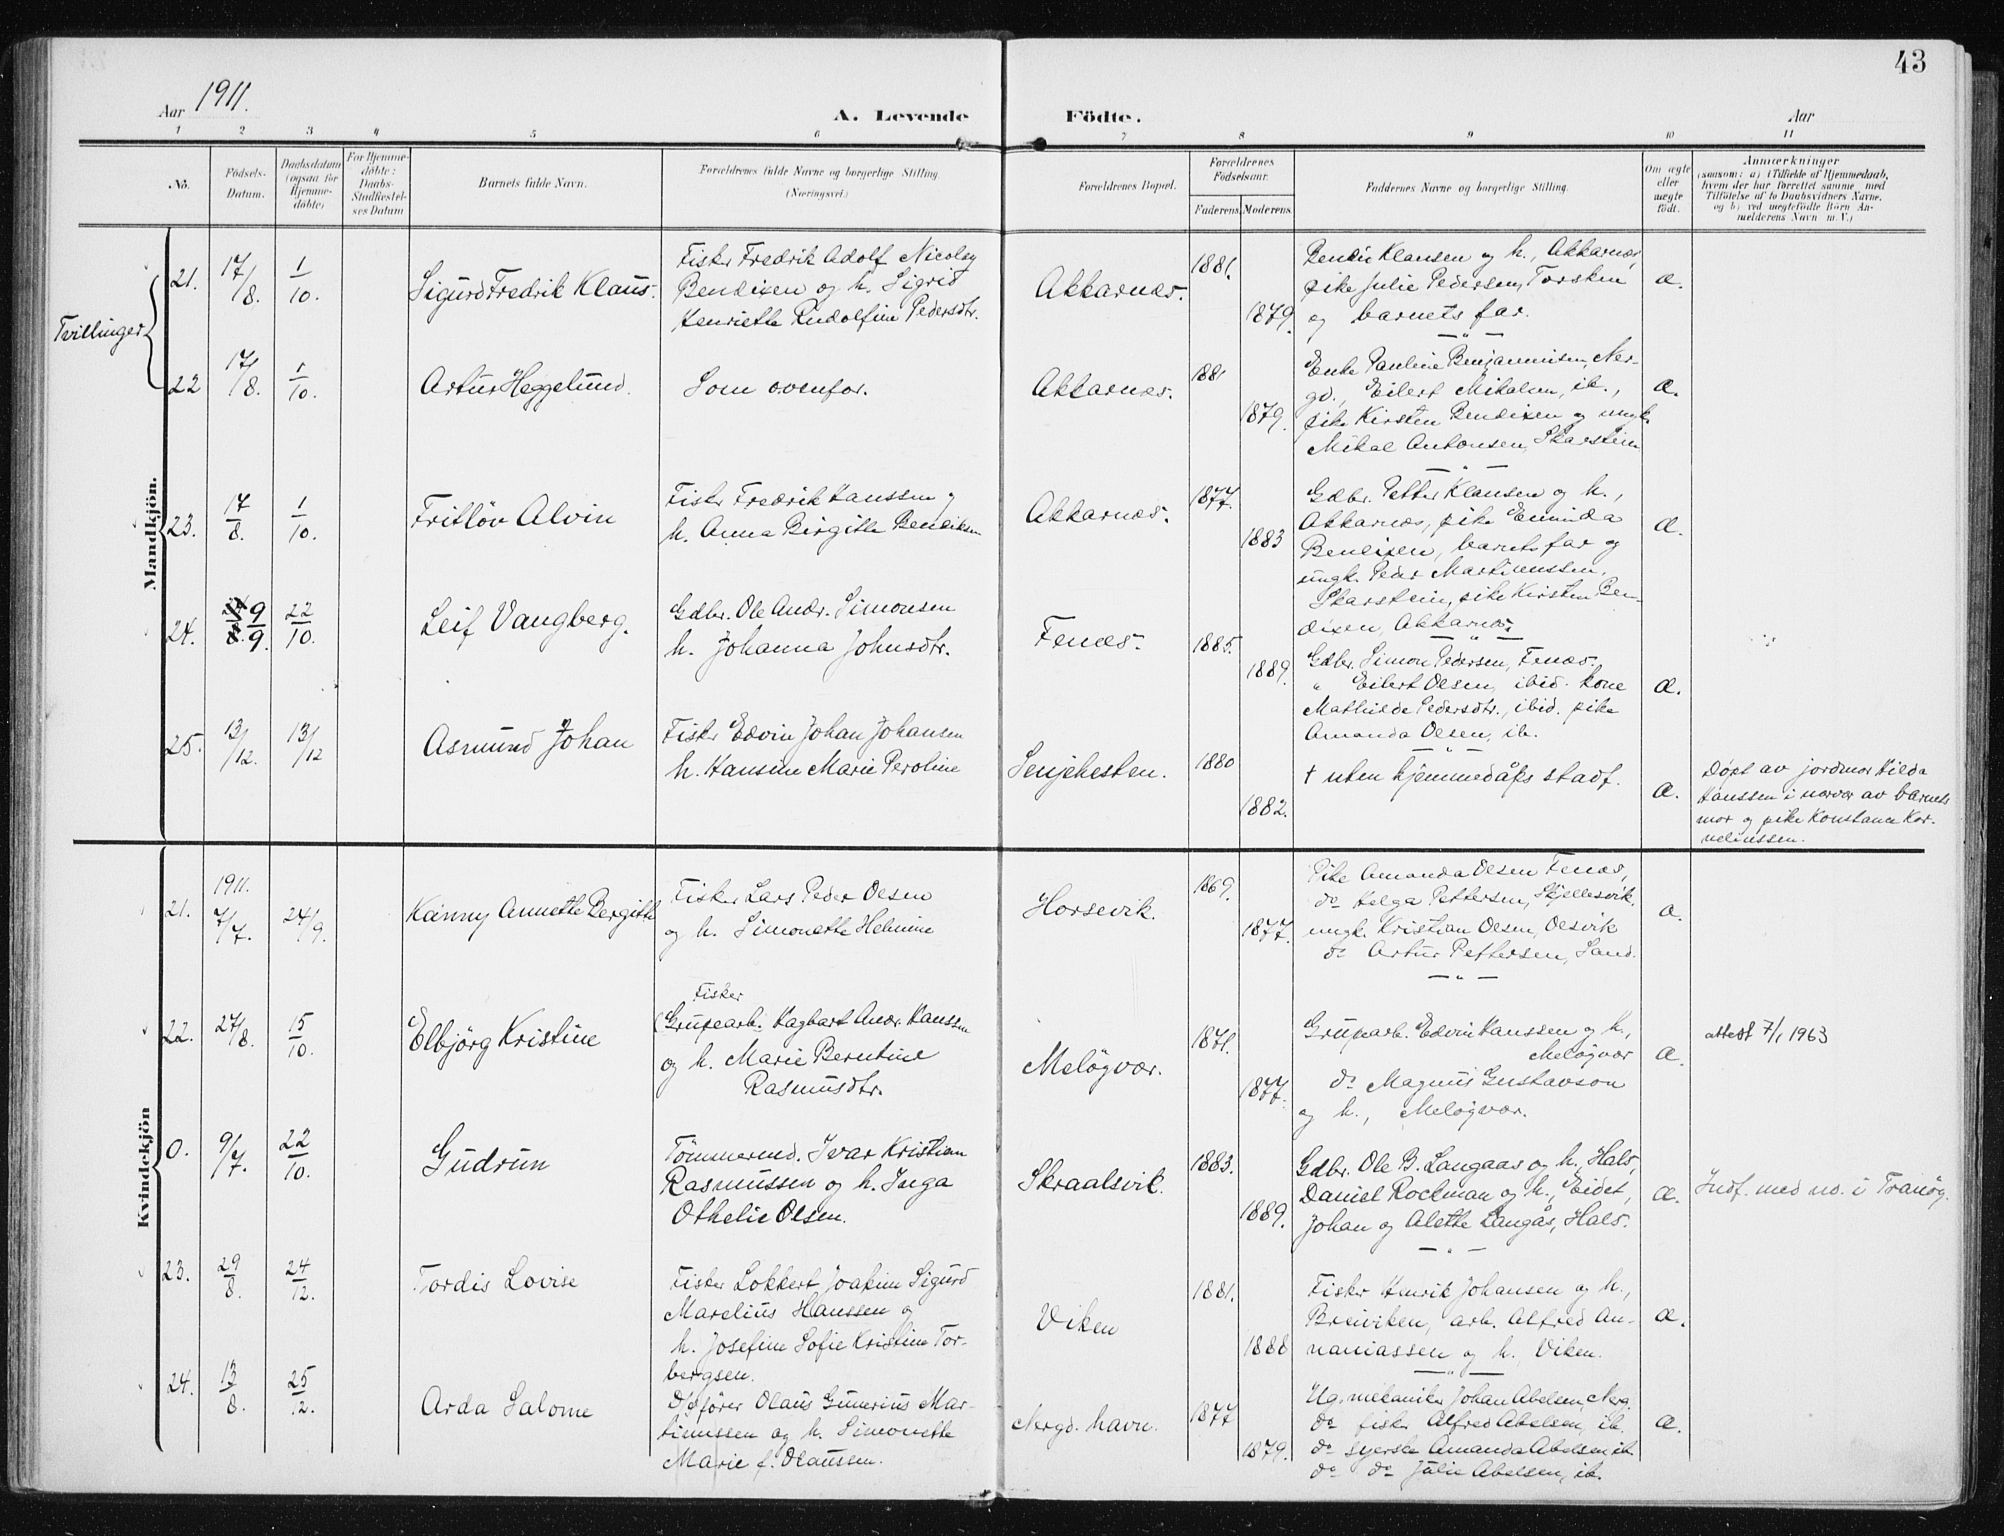 43
Aar 1911.
A. Levende Födte.
Aar
1 2 3 4 5 6 7 8 9 10 11
No.
Födsels-Datum.
Daabsdatum (ogsaa for Hjemme-döbte)
For Hjemme-döbte: Daabs-Stadfæstel-ses Datum
Barnets fulde Navn.
Forældrenes fulde Navne og borgerlige Stilling. (Næringsvei.)
Forældrenes Bopæl.
Forældrenes Födselsaar.
Faderens. Moderens.
Faddernes Navne og borgerlige Stilling.
Om ægte eller uægte födt.
Anmærkninger
(saasom: a) i Tilfælde af Hjemmedaab,
hvem der har forrettet samme, med
Tilföielse af to Daabsvidners Navne,
og b) ved uægtefödte Börn An-
melderens Navn m. V.)
Mandkjön.
Tvillinger
21. 17/8. 1/10. Sigurd Fredrik Klaus.
Fisker Fredrik Adolf Nicolay
Bendixen og h. Sigrid
Henriette Rudolfine Pedersdtr.
Akkarnæs. 1881. 1879.
Klausen og h., Akkarnæs,
pike Julie Pedersen, Torsken
og barnets far.
æ.
22 17/8. 1/10. Artur Heggelund.
Som ovenfor.
Akkarnæs. 1881 1879.
Enke Pauline Benjaminsen, Ner-
gd., Eilert Mikalsen, ib.,
pike Kirsten Bendixen og ungk.
Mikal Antonsen, Skarstein
æ.
23. 17/8. 1/10. Fritløv Alvin
Fisker Fredrik Hanssen og
h. Anna Birgitte Bendiksen
Akkarnæs. 1877. 1883
Gdbr. Petter Klausen og h.,
Akkarnæs, pike
Bendixen, barnets far og
ungk. Peder Martinussen,
Skarstein, pike Kirsten Ben-
dixen, Akkarnæs
æ.
24. 9/9. 22/10. Leif Vangberg.
Gdbr. Ole Andr. Simonsen
h. Johanna Johnsdtr.
Fenæs. 1885. 1889.
Gdbr. Simon Pedersen, Fenæs.
" Eilert Olsen, ibid. kone
Mathilde Pedersdtr., ibid. pike
Amanda Olsen, ib.
æ.
25. 13/12. 13/12 Asmund Johan
Fisker Edvin Johan Johansen
h. Hansine Marie Peroline
Senjehesten. 1880 1882.
† uten hjemmedåps stadf.
æ.
Døpt av jordmor Hilda
Hanssen i nærvær av barnets
mor og pike Konstance Kor-
neliussen.
Kvindekjön
21. 1911. 7/7. 24/9. Kanny Annette Bergith
Fisker Lars Peder Olsen
og h. Simonette Helmine
Horsevik. 1869. 1877.
Pike Amanda Olsen Fenæs,
do Helga Pettersen, Skjellesvik.
ungk. Kristian Olsen, Olsvik
do Artur Pettersen, Sand.
æ.
22. 27/8. 15/10. Elbjörg Kristine
Fisker
(Grupearb. Hagbart Andr. Hanssen
og h. Marie Berntine
Rasmusdtr.
Meløgvær. 1871. 1877.
Gruparb. Edvin Hanssen og h,
Meløgvær
do Magnus Gustavson
og h., Meløgvær.
æ.
attest 7/1 1963
0. 9/7. 22/10. Gudrun
Tømmermd. Ivar Kristian
Rasmussen og h. Inga
Othelie Olsen.
Skraalsvik. 1883. 1889.
Gdbr. Ole B. Langaas og h, Hals,
Daniel Rockman og h., Eidet,
Johan og Alette Langås, Hals.
æ.
Indf. med no. i Tranøy.
23. 29/8. 24/12. Tordis Lovise
Fisker Lokkert Joakim Sigurd
Marelius Hanssen og
h. Josefine Sofie Kristine Tor-
bergsen.
Viken 1881. 1888
Fisker Henrik Johansen og h.,
Breiviken, arb. Alfred An-
naniassen og h. Viken.
æ.
24. 13/8. 25/12. Arda Salome
Olaus Gunerius Mar-
tinussen og h. Simonette
Marie f. Olaussen.
Nergd. havn. 1877 1879.
Ug. mekaniker Johan Abelsen, Nerg.
do fisker Alfred Abelsen, ib
do syerske Amanda Abelsen ib
do do Julie Abelsen, ib.
æ.